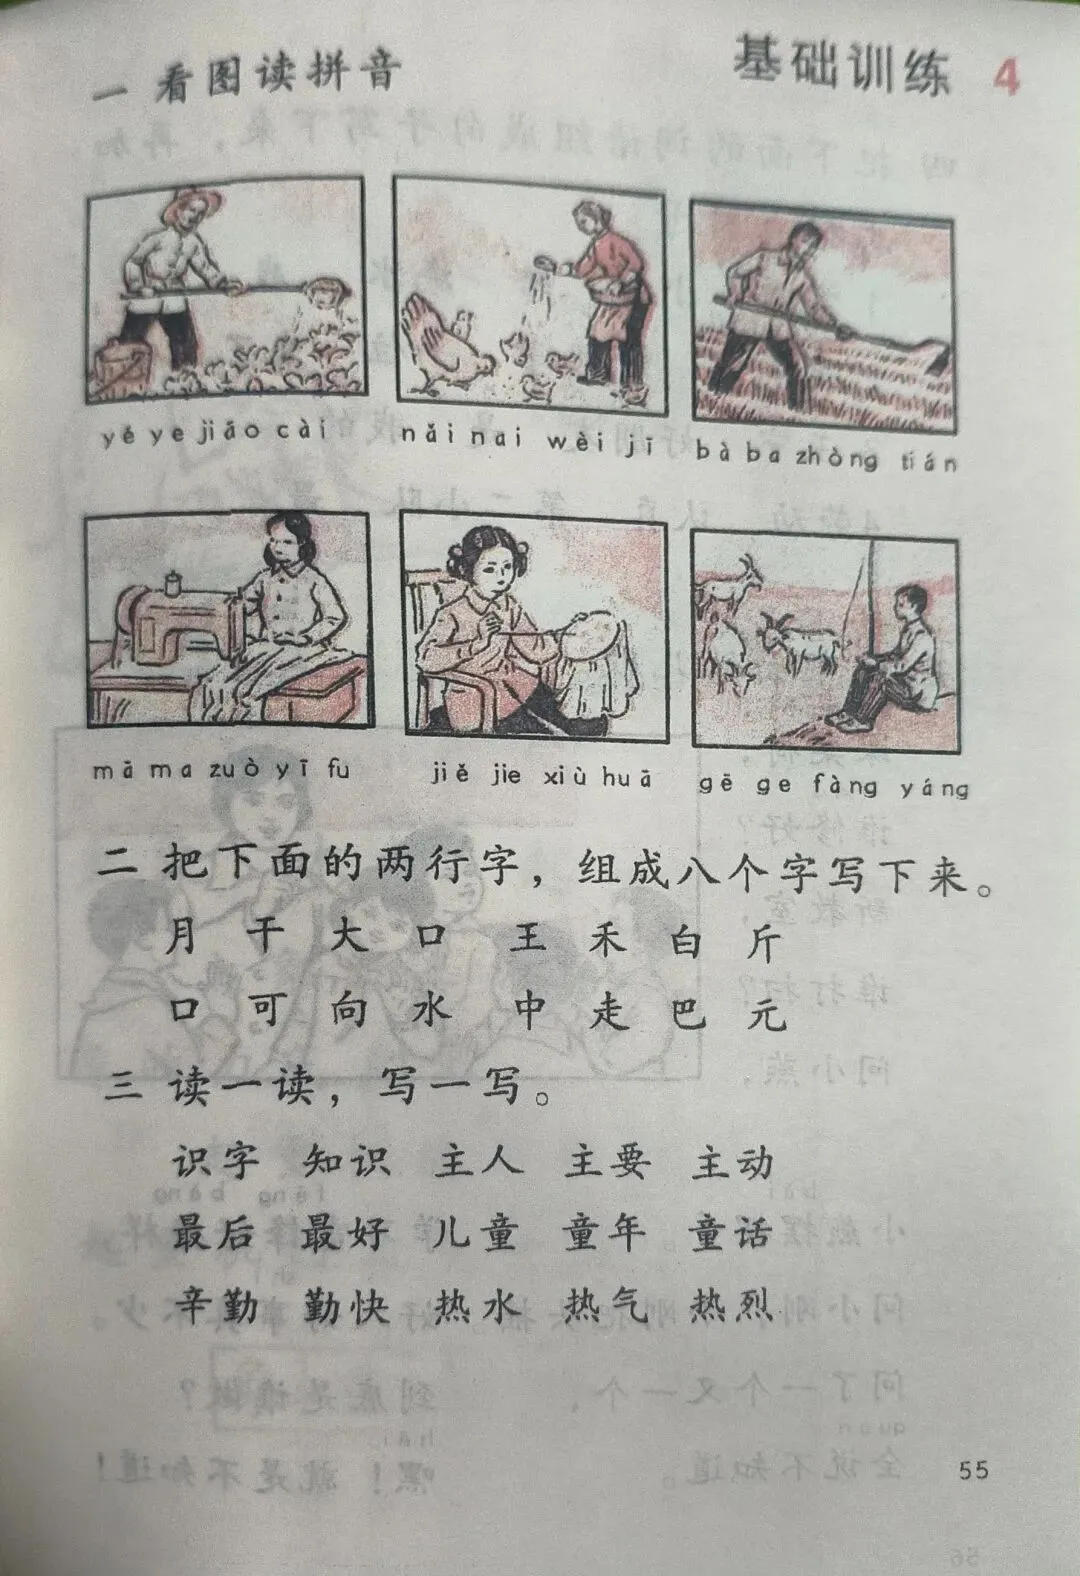 基础训练 4
一 看图读拼音
yé ye jiāo cài
nǎi nai wèi jī
bà ba zhòng tián
mā ma zuò yī fu
jiě jie xiù huā
gē ge fàng yáng
二 把下面的两行字，组成八个字写下来。
月 干 大 口 王 禾 白 斤
口 可 向 水 中 走 巴 元
三 读一读，写一写。
识字 知识 主人 主要 主动
最后 最好 儿童 童年 童话
辛勤 勤快 热水 热气 热烈
55